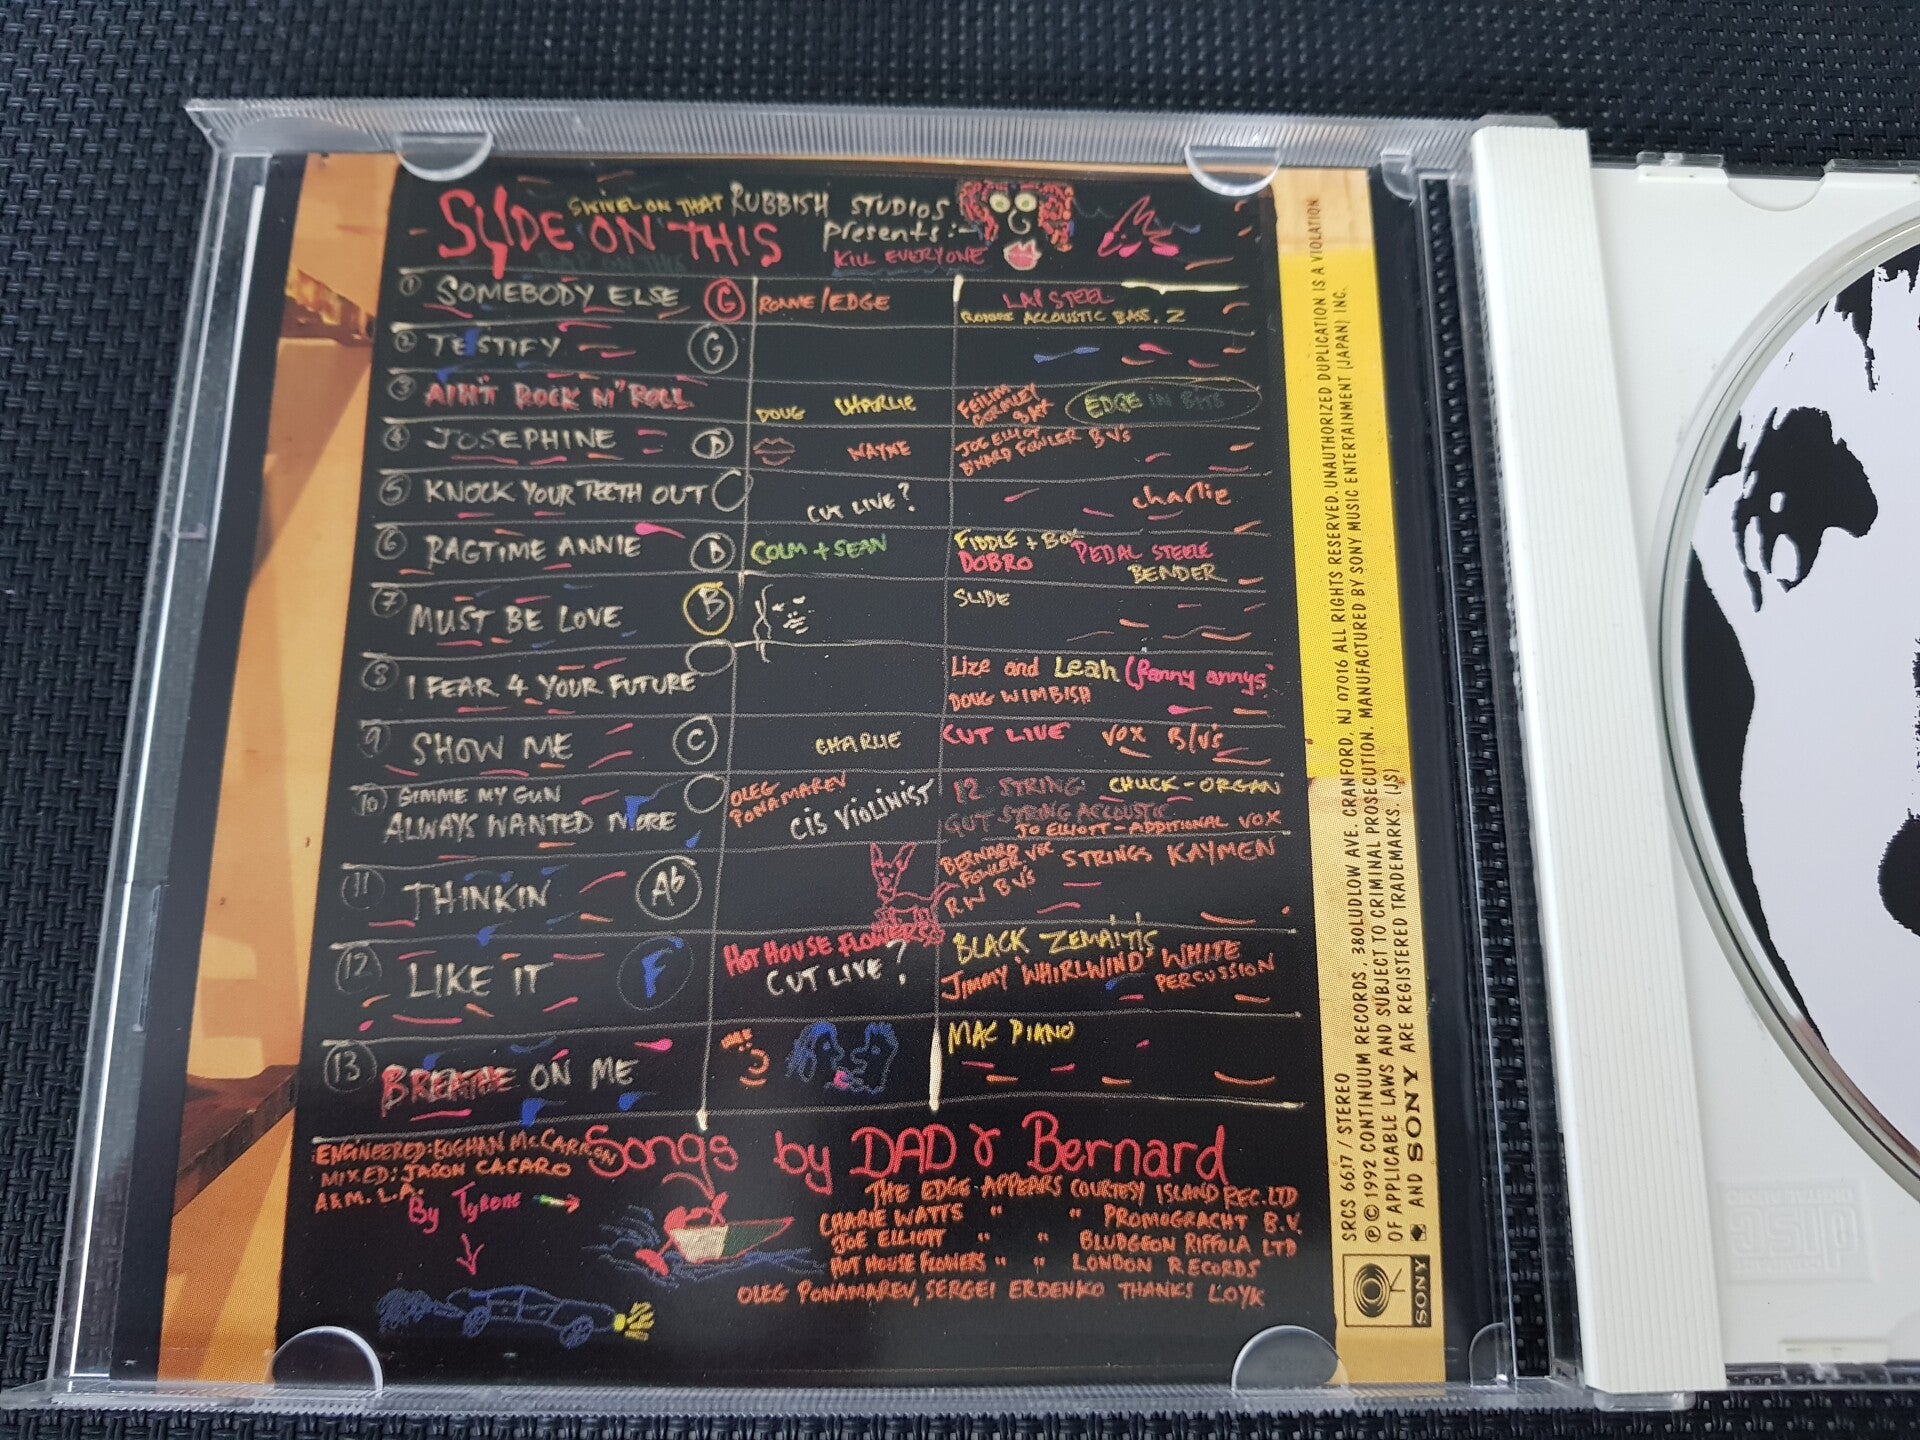 SWIVEL ON THAT RUBBISH STUDIOS
SLIDE ON THIS presents:-
KILL EVERYONE
1 SOMEBODY ELSE G RONNIE/EDGE LAP STEEL
RONNIE ACCOUSTIC BASS. Z
2 TESTIFY G
3 AIN'T ROCK N" ROLL DOUG CHARLIE FEILIM GORMLEY SAX EDGE IN BITS
4 JOSEPHINE D WAYNE JOE ELLIOT
B'NARD FOWLER B V's
5 KNOCK YOUR TEETH OUT CUT LIVE? charlie
6 RAGTIME ANNIE D COLM + SEAN FIDDLE + BOX
DOBRO PEDAL STEELE
BENDER
7 MUST BE LOVE B SLIDE
8 I FEAR 4 YOUR FUTURE Lize and Leah (fanny annys)
DOUG WIMBISH
9 SHOW ME C CHARLIE CUT LIVE VOX B/V's
10 GIMME MY GUN OLEG PONAMAREV 12 STRING CHUCK - ORGAN
ALWAYS WANTED MORE CIS VIOLINIST GUT STRING ACCOUSTIC
JO ELLIOTT - ADDITIONAL VOX
11 THINKIN Ab BERNARD FOWLER VOC STRINGS KAYMEN
RW B V's
12 LIKE IT F HOT HOUSE FLOWERS BLACK ZEMAITIS
CUT LIVE? JIMMY 'WHIRLWIND' WHITE
PERCUSSION
13 BREATHE ON ME MAC PIANO
ENGINEERED: EOGHAN McCARRON
MIXED: JASON CASARO
A&M. L.A.
By Tyrone
Songs by DAD & Bernard
THE EDGE APPEARS COURTESY ISLAND REC. LTD
CHARIE WATTS " " PROMOGRACHT B.V.
JOE ELLIOTT " " BLUDGEON RIFFOLA LTD
HOT HOUSE FLOWERS " " LONDON RECORDS
OLEG PONAMAREV, SERGEI ERDENKO THANKS LOYK
SRCS 6617 / STEREO
℗© 1992 CONTINUUM RECORDS, 380LUDLOW AVE. CRANFORD, NJ 07016 ALL RIGHTS RESERVED. UNAUTHORIZED DUPLICATION IS A VIOLATION
OF APPLICABLE LAWS AND SUBJECT TO CRIMINAL PROSECUTION. MANUFACTURED BY SONY MUSIC ENTERTAINMENT (JAPAN) INC.
AND SONY ARE REGISTERED TRADEMARKS. (JS)
SONY